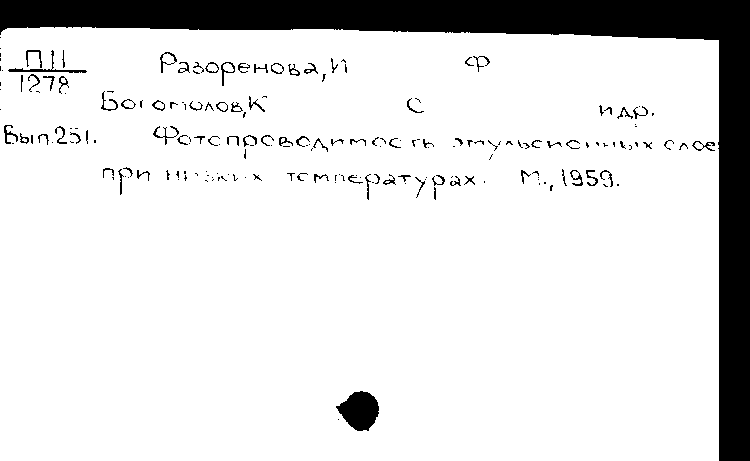 П11 Разоренова,И Ф
1278
Богомолов,К С и др.
Вып.251. Фотопроводимость эмульсионных слое
при низких температурах. М., 1959.